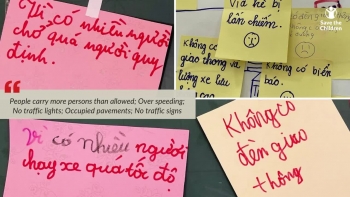 Vì có nhiều người
chở quá người quy
định.
People carry more persons than allowed; Over speeding;
No traffic lights; Occupied pavements; No traffic signs
Vì có nhiều người
chạy xe quá tốc độ
Vỉa hè bị
lấn chiếm.
không có
giao thông và
lượng xe lưu
không có biển
báo.
Save the
Children
Không có
đèn giao
thông